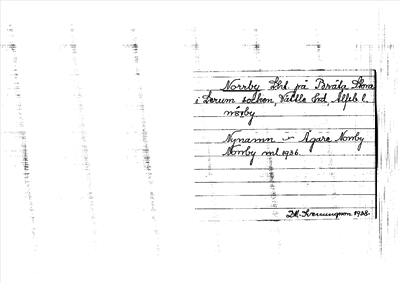 Norrby Lht. på Bråta Stora
i Lerum socken, Vättle hd, Älfsb. l.
nórby
Nynamn – Ägare Norrby
Norrby ml. 1936.
1938.